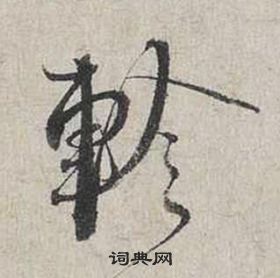 軫
词典网